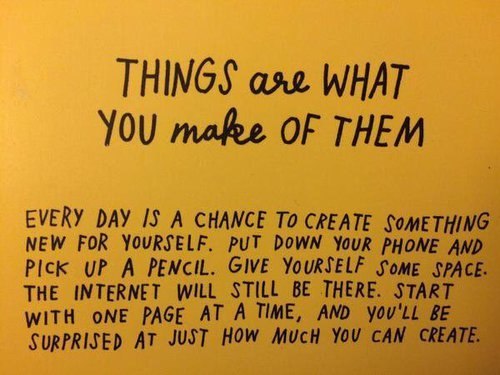 THINGS are WHAT
YOU make OF THEM
EVERY DAY IS A CHANCE TO CREATE SOMETHING
NEW FOR YOURSELF. PUT DOWN YOUR PHONE AND
PICK UP A PENCIL. GIVE YOURSELF SOME SPACE.
THE INTERNET WILL STILL BE THERE. START
WITH ONE PAGE AT A TIME, AND YOU'LL BE
SURPRISED AT JUST HOW MUCH YOU CAN CREATE.